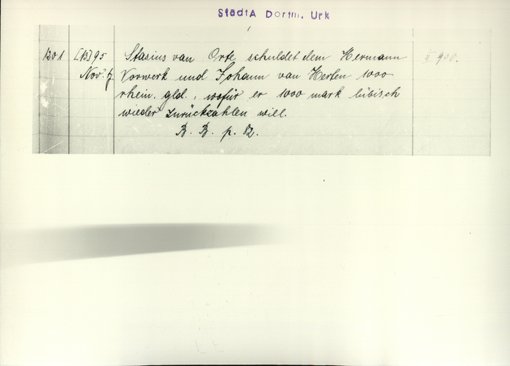 StadtA Dortm. Urk
1201 [13]95 Stasius van Orte schuldet dem Hermann II 900.
Nov. 7 Vorwerk und Johann van Herlen 1000
rhein. gld., wofür er 1000 mark lübisch
wieder zurückzahlen will.
K. K. p. 12.